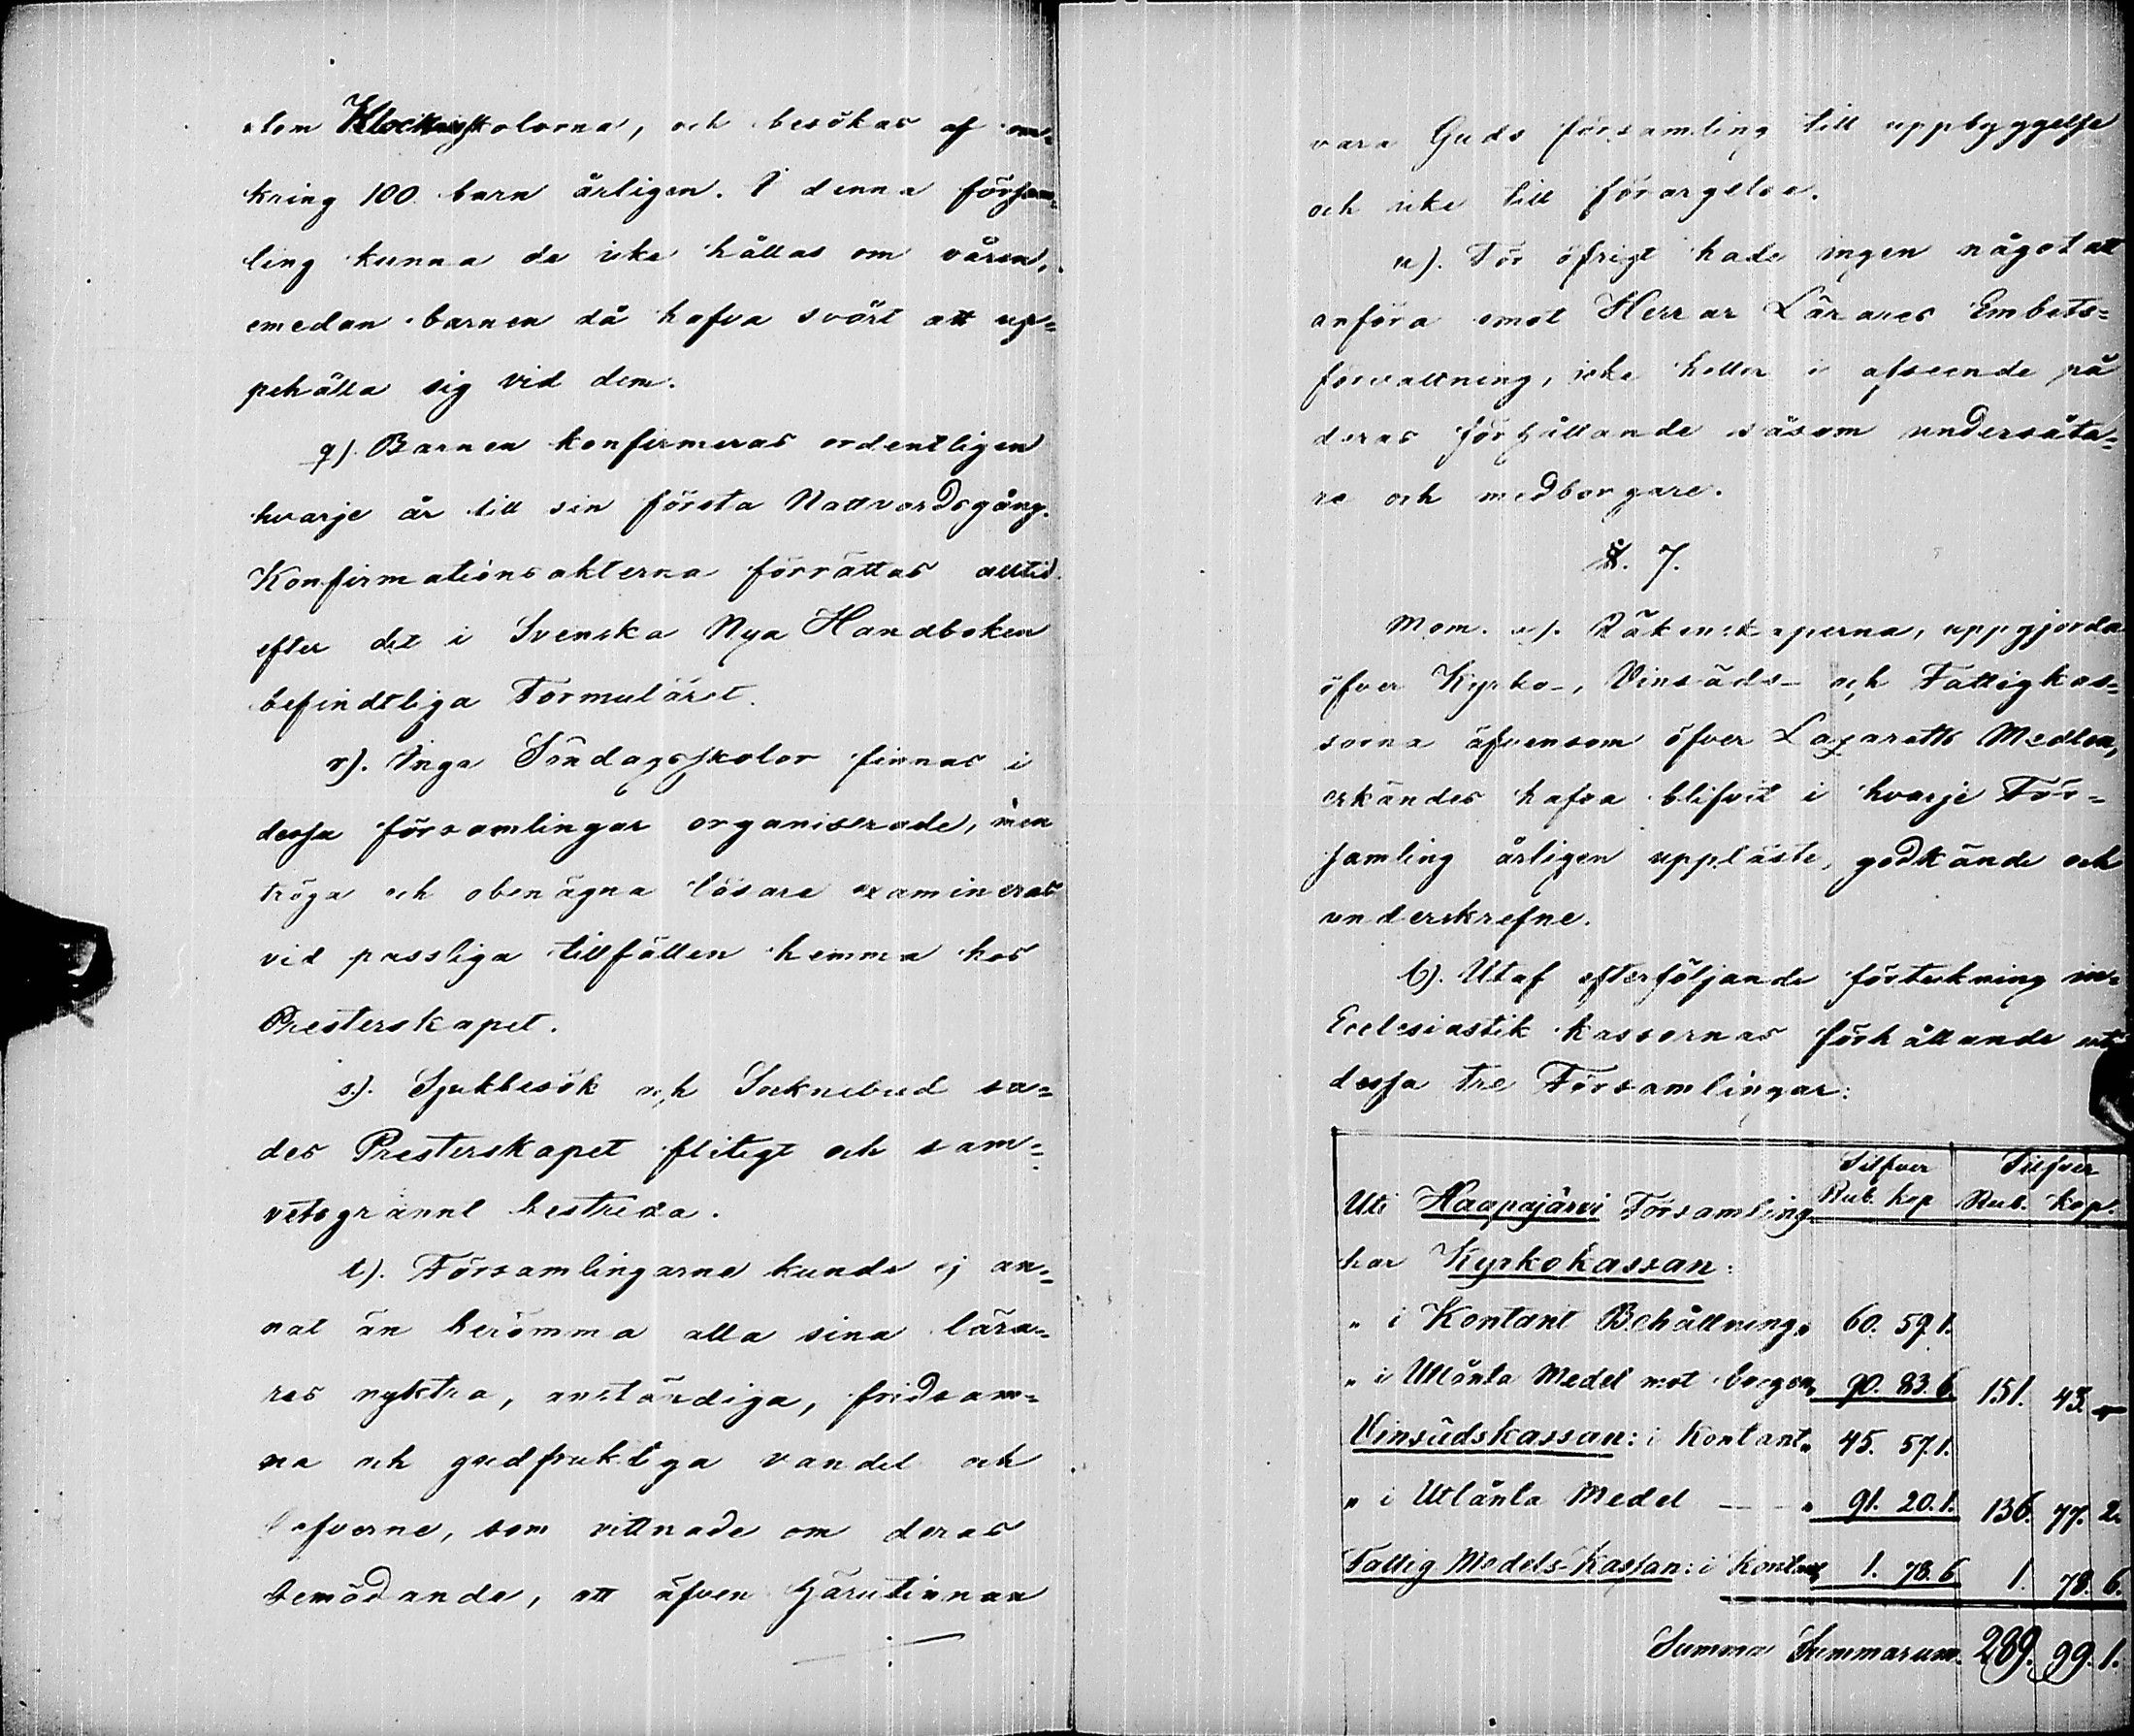 som Klockareskolorna, och besökas af om-
kring 100 barn årligen. I denna försam-
ling kunna de icke hållas om våren,
emedan barnen då hafva svårt att up-
pehålla sig vid dem.
q). Barnen konfirmeras ordentligen
hvarje år till sin första Nattvardsgång.
Konfirmationsakterna förrättas alltid
efter det i Svenska Nya Handboken
befindtliga Formuläret.
r). Inga Söndagsskolor finnas i
dessa församlingar organiserade, men
tröga och obenägna läsare examineras
vid passliga tillfällen hemma hos
Presterskapet.
s). Sjukbesök och Socknebud sa-
des Presterskapet flitigt och sam-
vetsgrannt bestrida.
t). Församlingarne kunde ej an-
nat än berömma alla sina lära-
res nyktra, anständiga, fridsam-
na och gudfruktiga vandel och
lefverne, som vittnade om deras
bemödande, att äfven härutinnan
vara Guds församling till uppbyggelse
och icke till förargelse.
u). För öfrigt hade ingen något att
anföra emot Herrar Lärares Embets-
förvaltning, icke heller i afseende på
deras förhållande såsom undersåta-
re och medborgare.
§. 7.
Mom. a). Räkenskaperna, uppgjorda
öfver Kyrko-, Vinsäds- och Fattigkas-
sorna äfvensom öfver Lazaretts Medlen,
erkändes hafva blifvit i hvarje För-
samling årligen uppläste, godkände och
underskrefne.
b). Utaf efterföljande förteckning in-
Ecclesiastik kassornas förhållande uti
dessa tre Församlingar:
Silfver Silfver
Uti Haapajärvi Församling Rub. kop Rub. kop.
har Kyrkokassan:
" i Kontant Behållning " 60. 59. 1.
" i Utlånta Medel mot borgen " 90. 83. 6. 151. 43. -
Vinsädskassan: i Kontant " 45. 57. 1.
" i Utlånta Medel - - " 91. 20. 1. 136. 77. 2.
Fattig Medels-Kassan: i Kontant 1. 78. 6 1. 78. 6.
Summa Summarum. 289. 99. 1.